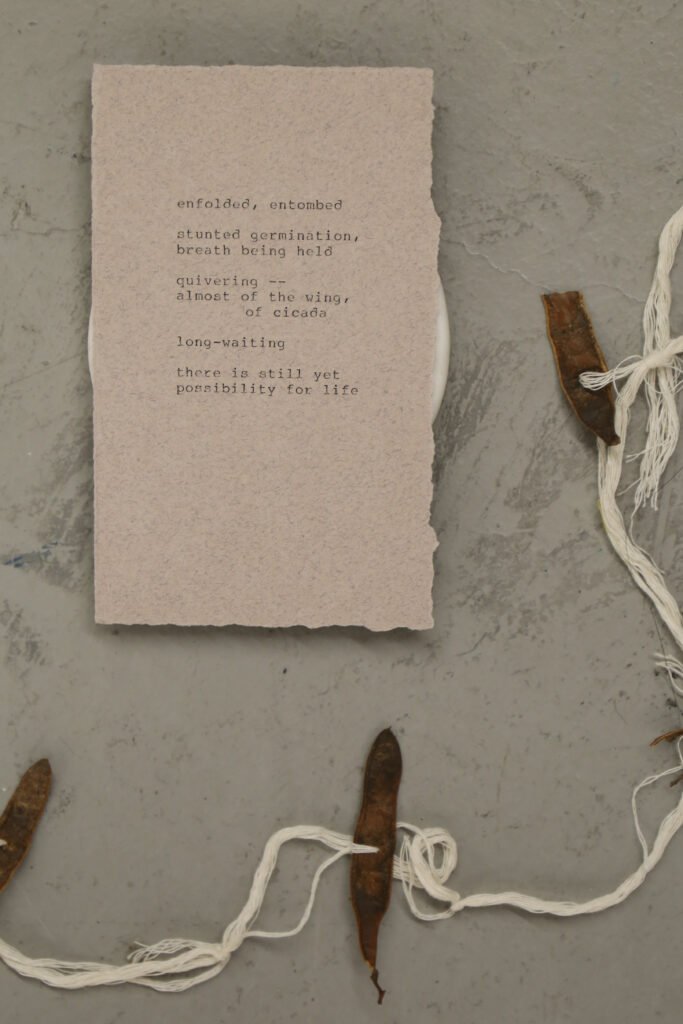 enfolded, entombed
stunted germination,
breath being held
quivering --
almost of the wing,
of cicada
long-waiting
there is still yet
possibility for life